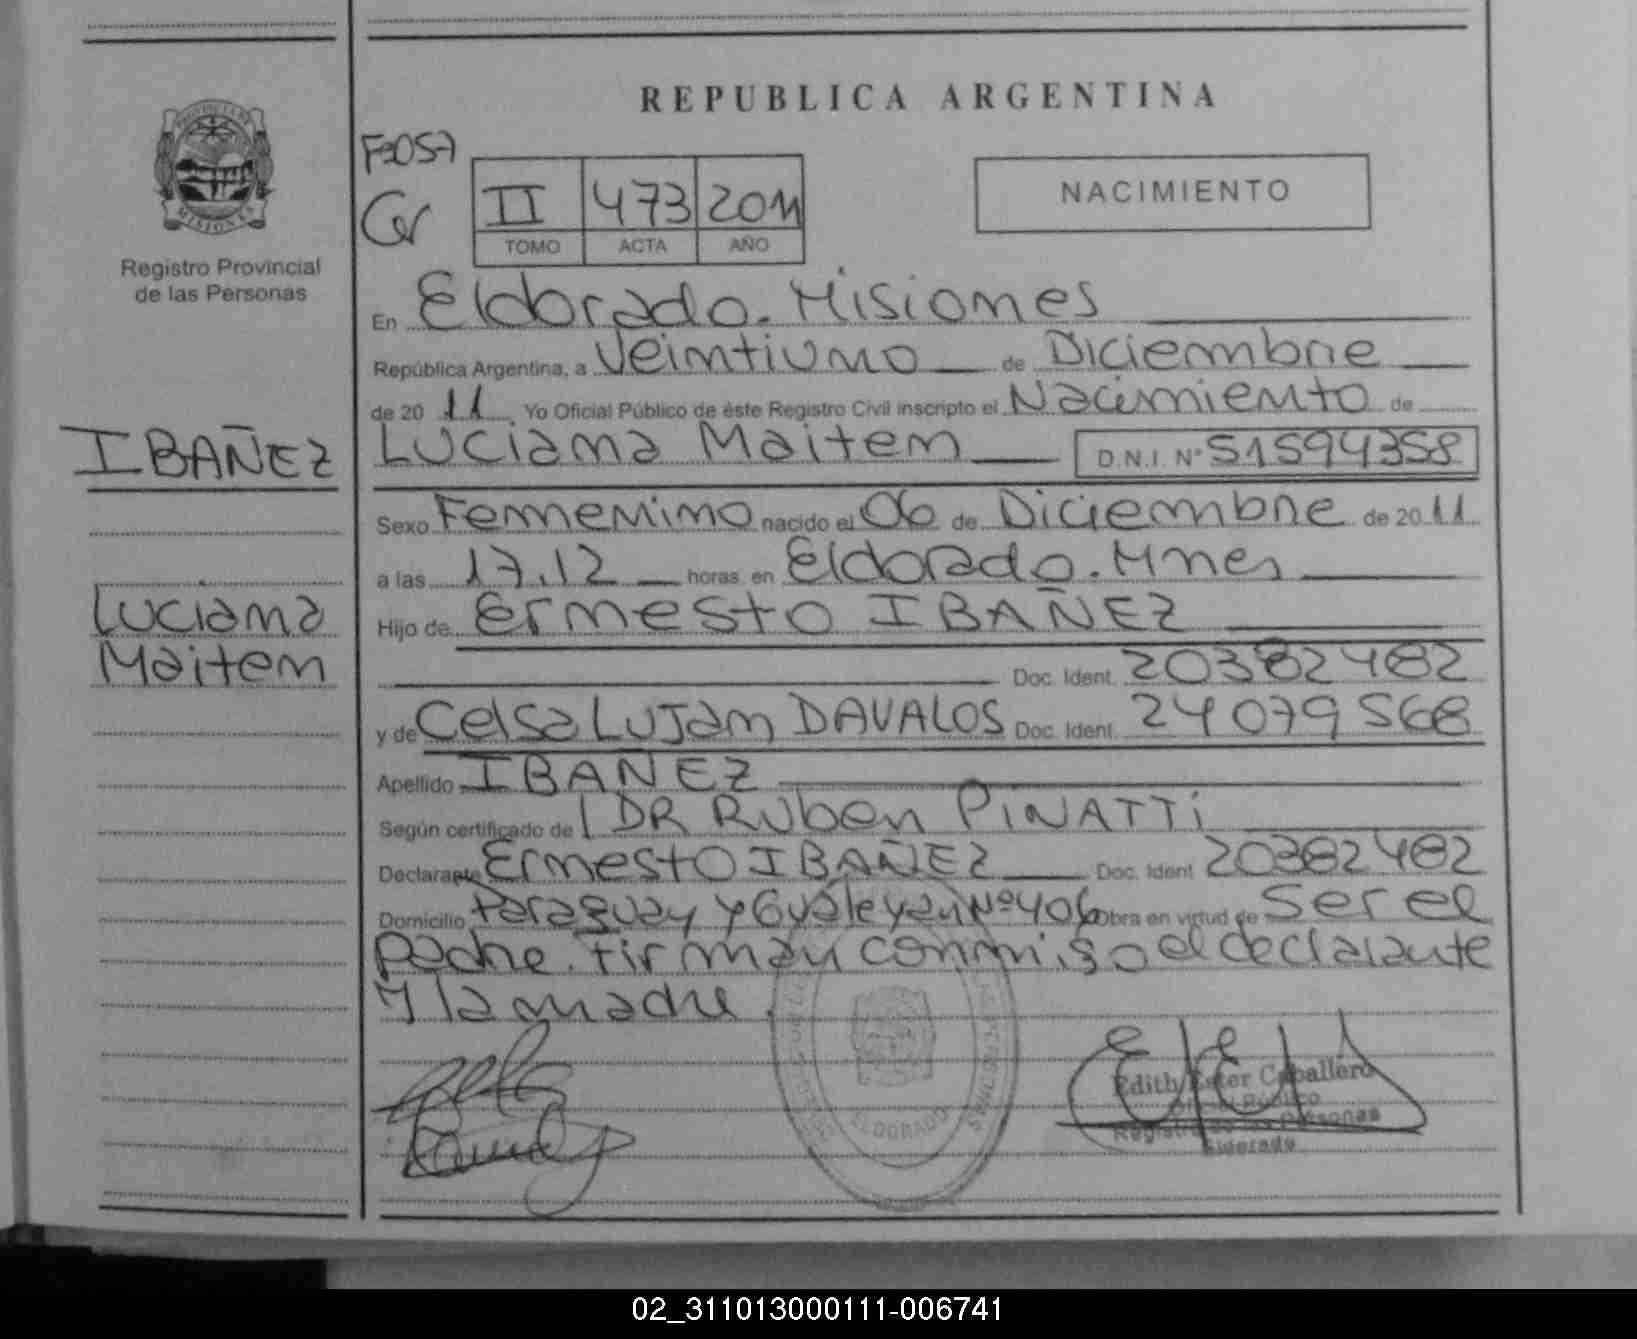 REPUBLICA ARGENTINA
PROVINCIA DE
MISIONES
Registro Provincial
de las Personas
II 473 2011
TOMO ACTA AÑO
NACIMIENTO
En Eldorado. Misiones
República Argentina, a Veintiuno de Diciembre
de 20 11 Yo Oficial Público de éste Registro Civil inscripto el Nacimiento de
IBAÑEZ
Luciana Maiten D.N.I. N° 51594358
Sexo Femenino nacido el 06 de Diciembre de 20 11
a las 17.12 horas en Eldorado. Mnes
Luciana
Maiten
Hijo de Ernesto IBAÑEZ
Doc. Ident. 20382482
y de Celsa Lujan DAVALOS Doc. Ident. 24079568
Apellido IBAÑEZ
Según certificado de DR Ruben PINATTI
Declarante Ernesto IBAÑEZ Doc. Ident 20382482
Domicilio Paraguay y Gualeyan Nº 406 Obra en virtud de Ser el
padre. firman conmigo el declarante
y la madre.
ELDORADO
Edith Ester Caballero
Oficial Público
Registro de las Personas
Eldorado
02_311013000111-006741